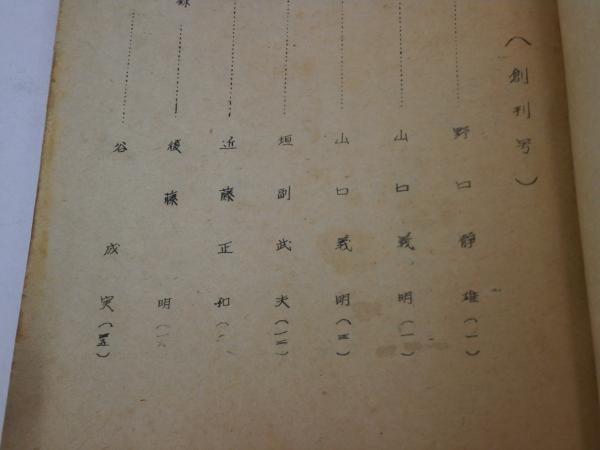 （創刊号）
野口靜雄（一）
山口義明（一）
山口義明（三）
垣副武夫（一三）
近藤正和
録 後藤明（一六
谷成実（四五）